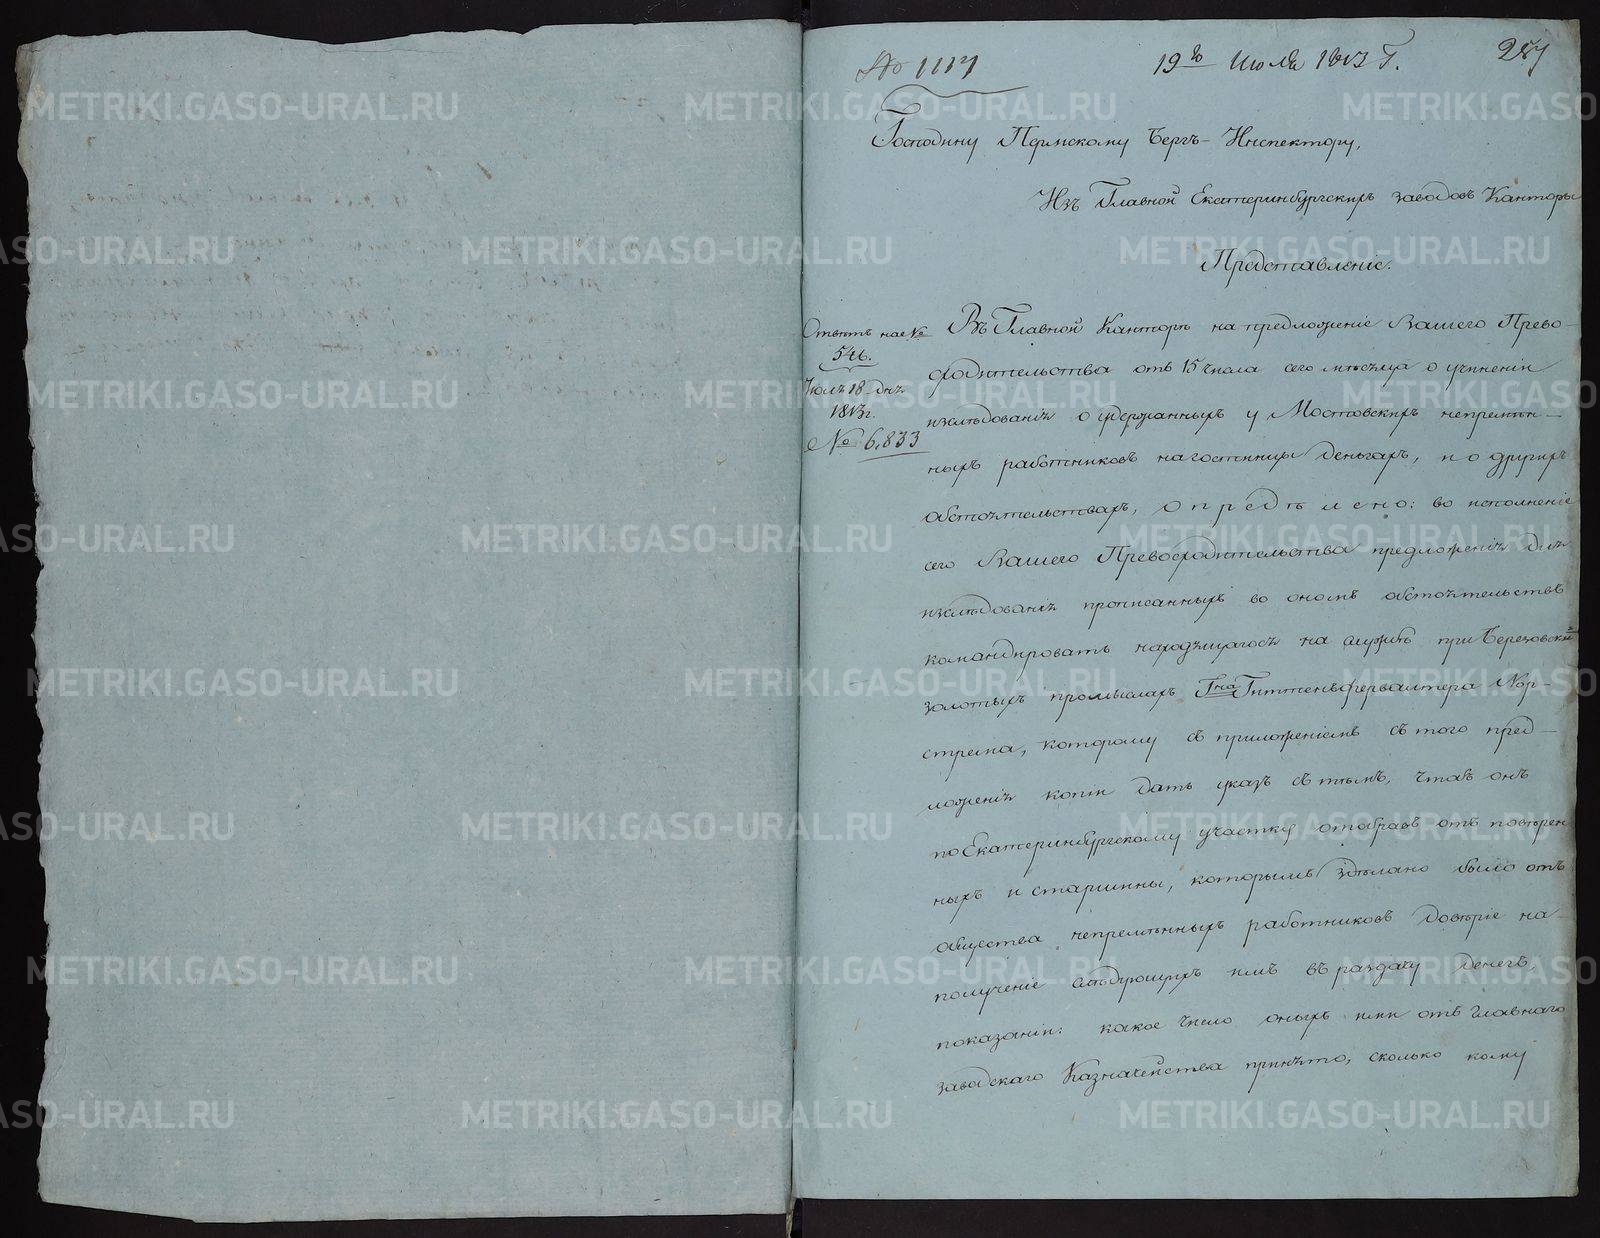 № 1117
19го Июля 1813 Г.
Господину Пермскому Бергъ-Инспектору,
Изъ Главной Екатеринбургскихъ заводовъ Канторы
Представленіе.
Отвѣтъ на №
546.
Іюля 18 дня
1813г.
№ 6,833
Въ Главной Канторѣ на предложеніе Вашего Прево-
сходительства отъ 15 числа сего мѣсяца о учиненіи
изслѣдованія о удержанныхъ у Мостовскихъ непремѣн-
ныхъ работниковъ на гостинцы деньгахъ, и о другихъ
обстоятельствахъ, опредѣлено: во исполненіе
сего Вашего Превосходительства предложенія для
изслѣдованія прописанныхъ во ономъ обстоятельствъ
командировать находящагося на службѣ при Березовскихъ
золотыхъ промыслахъ Гна Гиттенфервалтера Нор-
стрема, которому съ приложеніемъ съ того пред-
ложенія копіи дать указъ съ тѣмъ, чтобъ онъ
по Екатеринбургскому участку отобравъ отъ повѣрен
ныхъ и старшины, которымъ здѣлано было отъ
общества непремѣнныхъ работниковъ довѣріе на
полученіе слѣдующихъ имъ въ раздачу денегъ,
показаніи: какое число оныхъ ими отъ главнаго
заводскаго Казначейства принято, сколько кому
METRIKI.GASO-URAL.RU